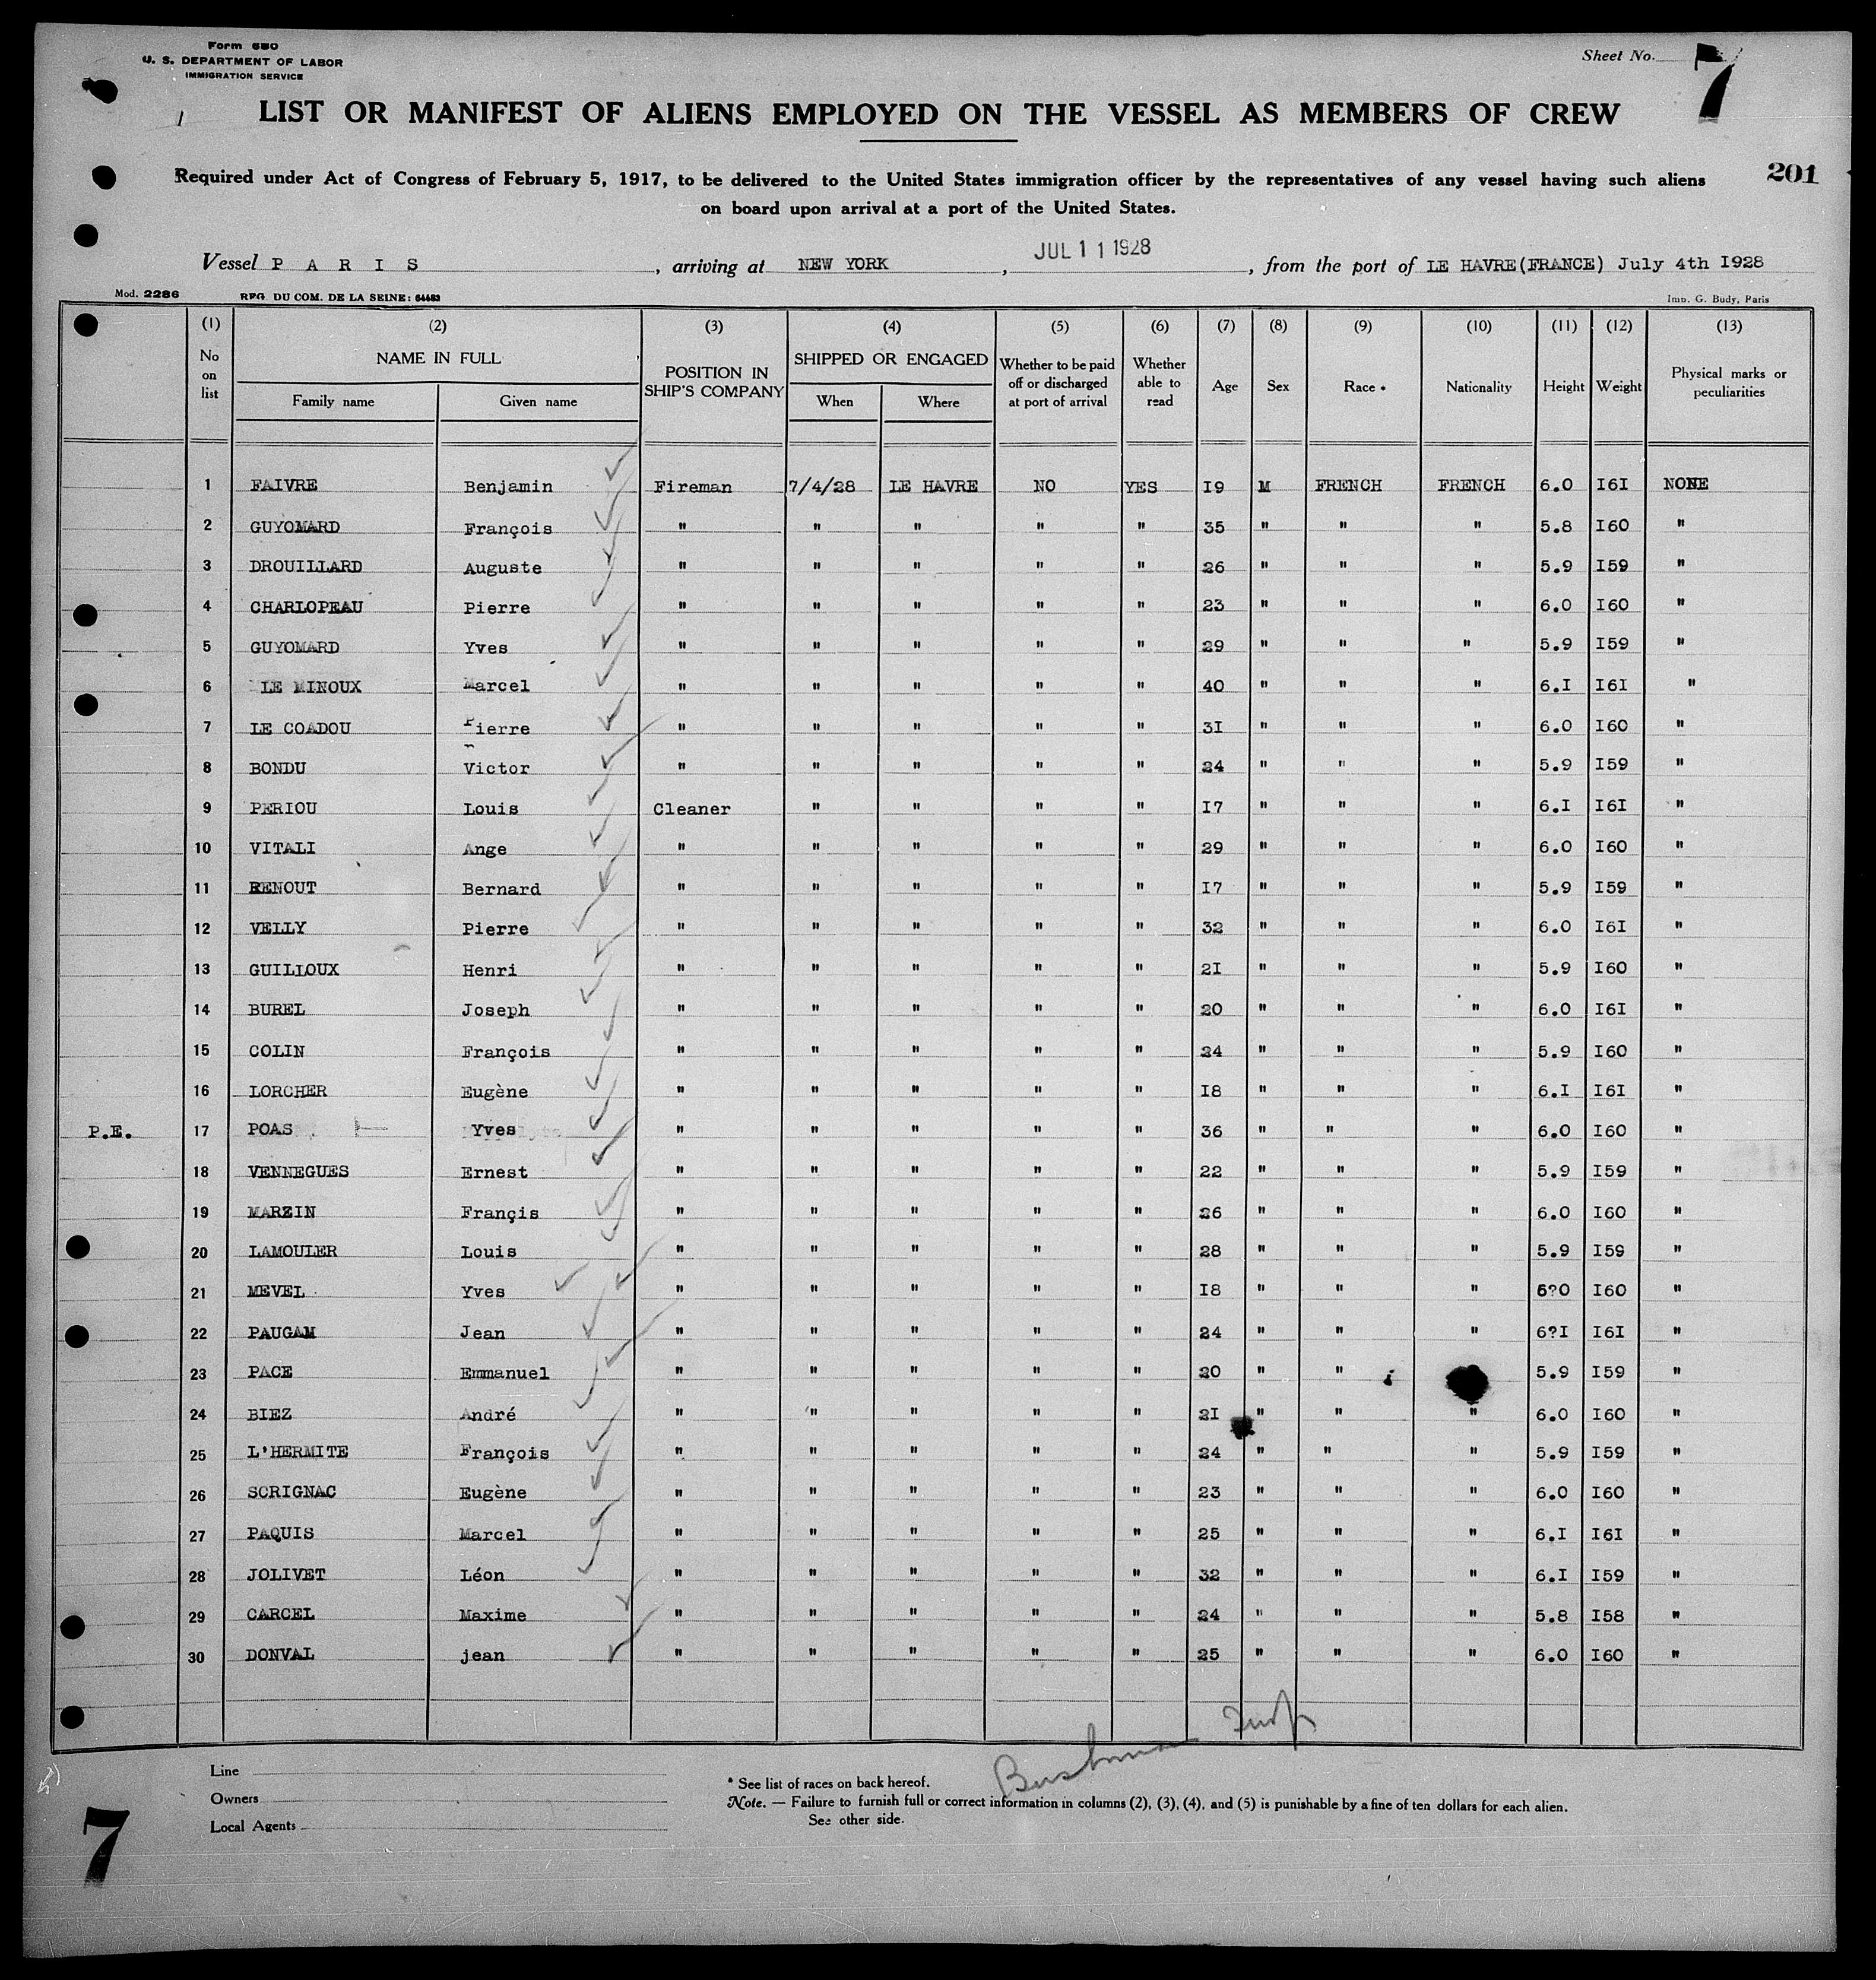 Form 680
U. S. DEPARTMENT OF LABOR
IMMIGRATION SERVICE
Sheet No. 7
LIST OR MANIFEST OF ALIENS EMPLOYED ON THE VESSEL AS MEMBERS OF CREW
201
Required under Act of Congress of February 5, 1917, to be delivered to the United States immigration officer by the representatives of any vessel having such aliens
on board upon arrival at a port of the United States.
Vessel P A R I S , arriving at NEW YORK , JUL 11 1928 , from the port of LE HAVRE(FRANCE) July 4th I928
Mod. 2286 REG DU COM. DE LA SEINE: 64483 Imp. G. Budy, Paris
(1) (2) (3) (4) (5) (6) (7) (8) (9) (10) (11) (12) (13)
No on list NAME IN FULL Family name Given name POSITION IN SHIP'S COMPANY SHIPPED OR ENGAGED When Where Whether to be paid off or discharged at port of arrival Whether able to read Age Sex Race * Nationality Height Weight Physical marks or peculiarities
1 FAIVRE Benjamin Fireman 7/4/28 LE HAVRE NO YES I9 M FRENCH FRENCH 6.0 I6I NONE
2 GUYOMARD François " " " " " 35 " " " 5.8 I60 "
3 DROUILLARD Auguste " " " " " 26 " " " 5.9 I59 "
4 CHARLOPEAU Pierre " " " " " 23 " " " 6.0 I60 "
5 GUYOMARD Yves " " " " " 29 " " " 5.9 I59 "
6 LE MINOUX Marcel " " " " " 40 " " " 6.I I6I "
7 LE COADOU Pierre " " " " " 3I " " " 6.0 I60 "
8 BONDU Victor " " " " " 24 " " " 5.9 I59 "
9 PERIOU Louis Cleaner " " " " I7 " " " 6.I I6I "
10 VITALI Ange " " " " " 29 " " " 6.0 I60 "
11 RENOUT Bernard " " " " " I7 " " " 5.9 I59 "
12 VELLY Pierre " " " " " 32 " " " 6.0 I6I "
13 GUILLOUX Henri " " " " " 2I " " " 5.9 I60 "
14 BUREL Joseph " " " " " 20 " " " 6.0 I6I "
15 COLIN François " " " " " 24 " " " 5.9 I60 "
16 LORCHER Eugène " " " " " I8 " " " 6.I I6I "
P.E. 17 POAS Yves " " " " " 36 " " " 6.0 I60 "
18 VENNEGUES Ernest " " " " " 22 " " " 5.9 I59 "
19 MARZIN Françis " " " " " 26 " " " 6.0 I60 "
20 LAMOULER Louis " " " " " 28 " " " 5.9 I59 "
21 MEVEL Yves " " " " " I8 " " " 6?0 I60 "
22 PAUGAM Jean " " " " " 24 " " " 6?I I6I "
23 PACE Emmanuel " " " " " 30 " " 5.9 I59 "
24 BIEZ André " " " " " 2I " " " 6.0 I60 "
25 L'HERMITE François " " " " " 24 " " " 5.9 I59 "
26 SCRIGNAC Eugène " " " " " 23 " " " 6.0 I60 "
27 PAQUIS Marcel " " " " " 25 " " " 6.I I6I "
28 JOLIVET Léon " " " " " 32 " " " 6.I I59 "
29 CARCEL Maxime " " " " " 24 " " " 5.8 I58 "
30 DONVAL jean " " " " " 25 " " " 6.0 I60 "
Line
Owners
Local Agents
* See list of races on back hereof.
Note. — Failure to furnish full or correct information in columns (2), (3), (4), and (5) is punishable by a fine of ten dollars for each alien.
See other side.
7